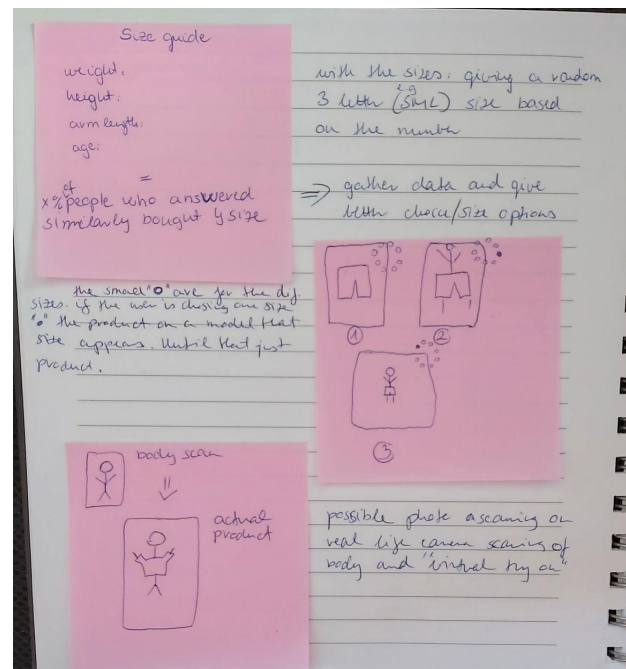 Size guide
weight:
height:
arm length:
age:
=
x% of people who answered
similarly bought y size
with the sizes: giving a random
3 letter (e.g. SML) size based
on the number
⇒ gather data and give
better choice/size options
the small "o" are for the dif
sizes. if the user is chosing one size
"o" the product on a model that
size appears. Until that just
product.
①
②
③
body scan
actual
product
possible photo scaning or
real life camera scaning of
body and "virtual try on"